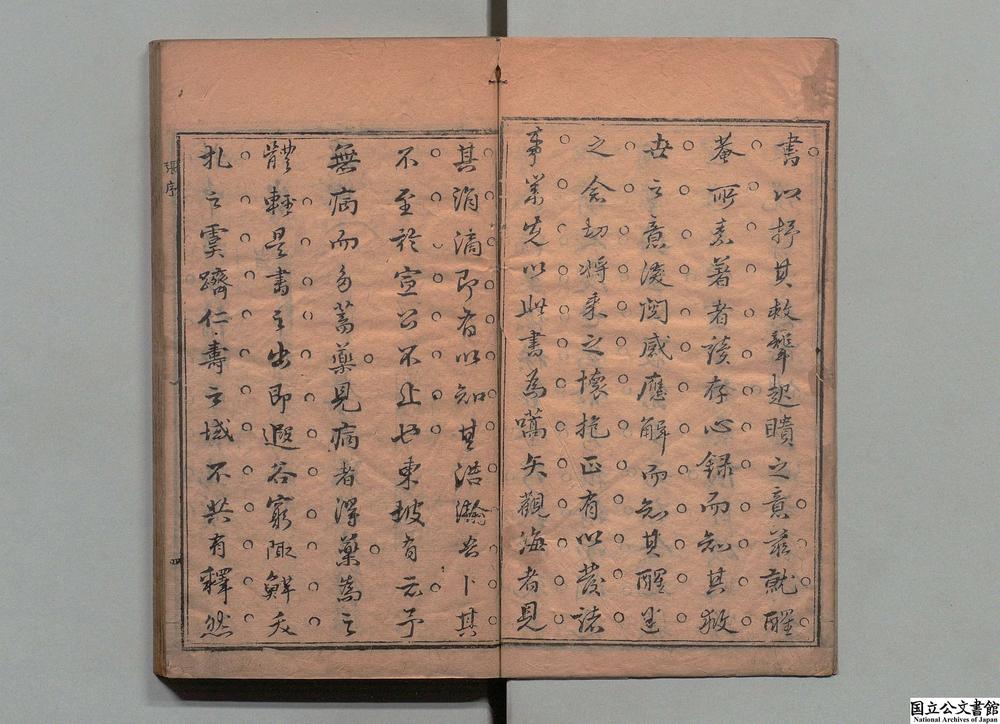 書以抒其救聾起聵之意茲就醒
菴所素著者讀存心録而知其救
世之意深閱感應解而知其醒迷
之念切將來之懷抱正有以發諸
事業先以此書為嚆矢觀海者見
其涓滴即有以知其浩瀚吾卜其
不至於宣公不止也東坡有云予
無病而多蓄藥見病者得藥為之
體輕是書之出即遐谷窮陬鮮夭
札之虞躋仁壽之域不共有釋然
張序
四
国立公文書館
National Archives of Japan